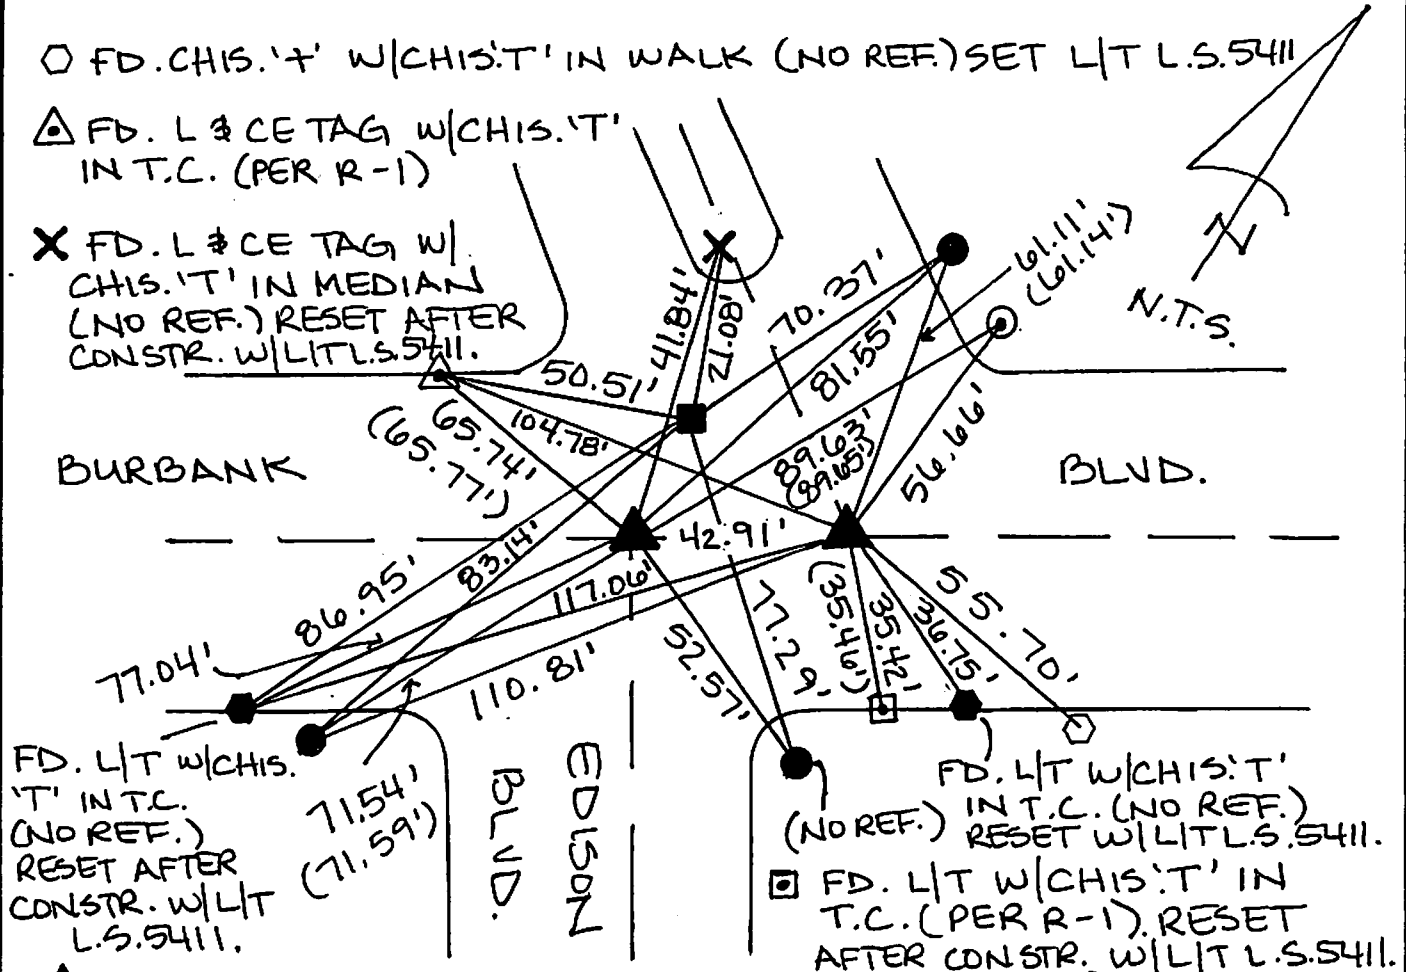 FD. CHIS. '+' W/CHIS.'T' IN WALK (NO REF.) SET L/T L.S. 5411
FD. L & CE TAG W/CHIS. 'T'
IN T.C. (PER R-1)
FD. L & CE TAG W/
CHIS. 'T' IN MEDIAN
(NO REF.) RESET AFTER
CONSTR. W/L/T L.S. 5411.
N
N.T.S.
61.11'
(61.14')
70.37'
41.84'
21.08'
81.55'
50.51'
65.74'
(65.77')
104.78'
89.63'
(89.65')
56.66'
BURBANK
BLVD.
42.91'
86.95'
83.14'
117.06'
77.04'
110.81'
52.57'
77.29'
(35.46')
35.42'
36.75'
55.70'
71.54'
(71.59')
FD. L/T W/CHIS.
'T' IN T.C.
(NO REF.)
RESET AFTER
CONSTR. W/L/T
L.S. 5411.
EDISON
BLVD.
(NO REF.)
FD. L/T W/CHIS. 'T'
IN T.C. (NO REF.)
RESET W/L/T L.S. 5411.
FD. L/T W/CHIS. 'T' IN
T.C. (PER R-1). RESET
AFTER CONSTR. W/L/T L.S. 5411.